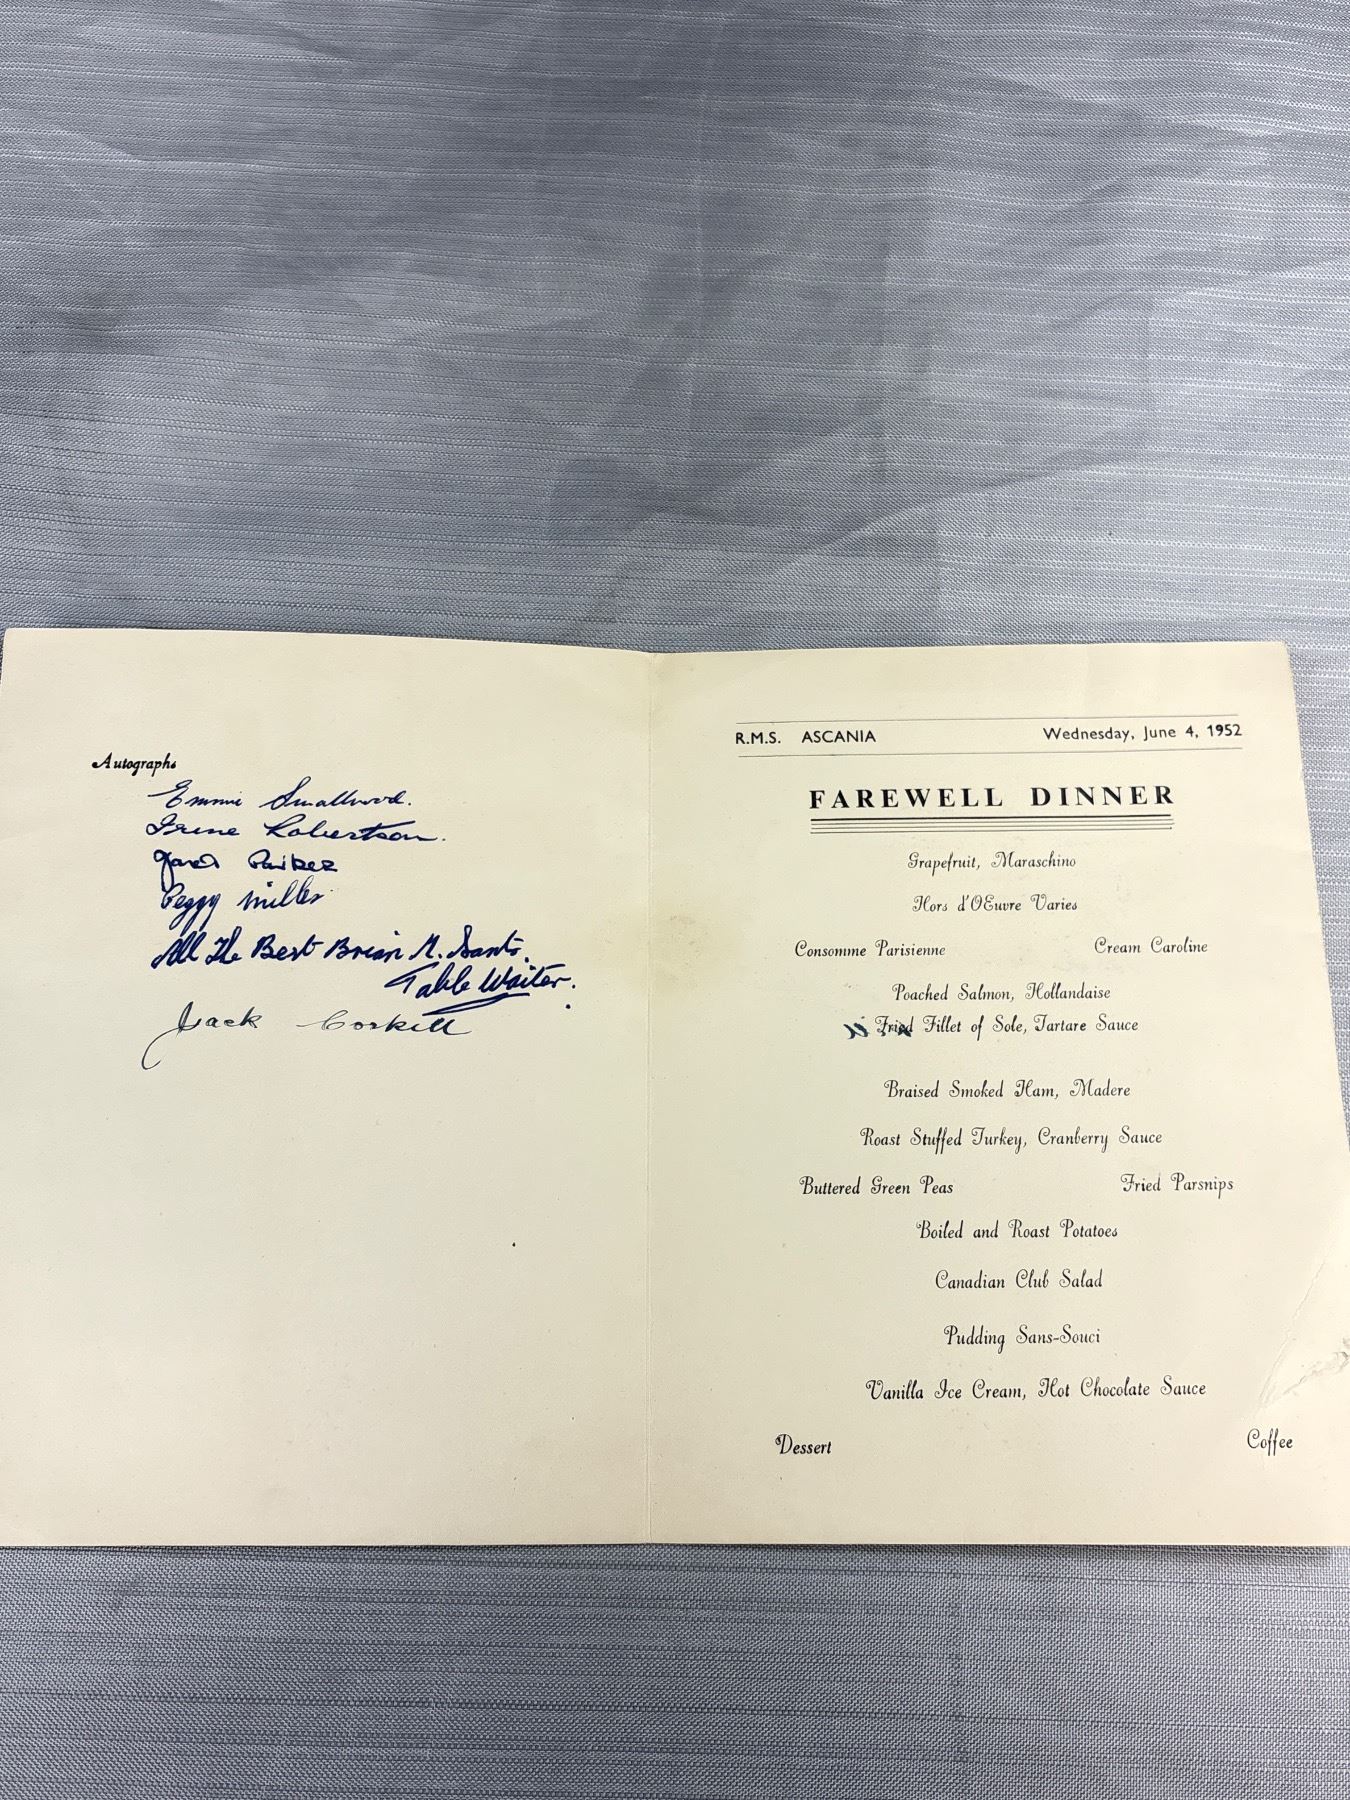 Autographs
Emmie Smallwood.
Irene Robertson.
Parker
Peggy Miller
All The Best Brian
Table Waiter.
Jack Corkill
R.M.S. ASCANIA Wednesday, June 4, 1952
FAREWELL DINNER
Grapefruit, Maraschino
Hors d'OEuvre Varies
Consomme Parisienne Cream Caroline
Poached Salmon, Hollandaise
Fried Fillet of Sole, Tartare Sauce
Braised Smoked Ham, Madere
Roast Stuffed Turkey, Cranberry Sauce
Buttered Green Peas Fried Parsnips
Boiled and Roast Potatoes
Canadian Club Salad
Pudding Sans-Souci
Vanilla Ice Cream, Hot Chocolate Sauce
Dessert Coffee